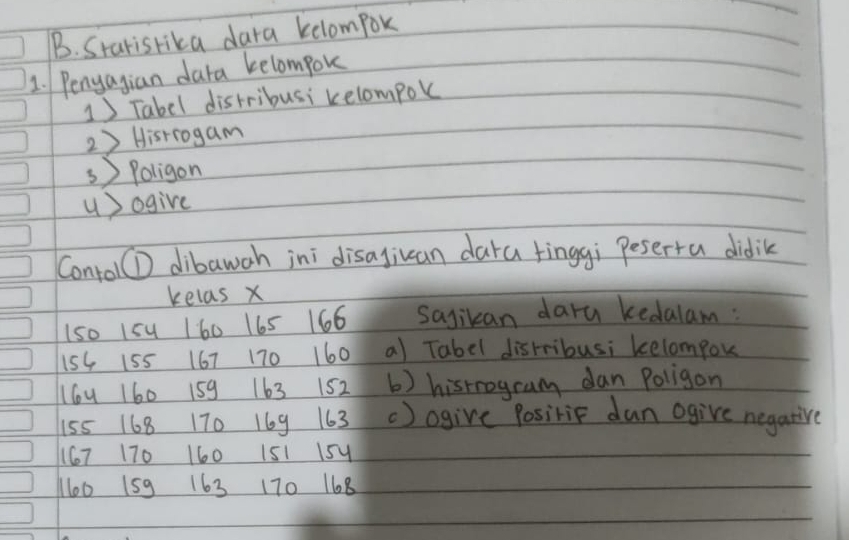 B. Statistika data kelompok
1. Penyajian data kelompok
1> Tabel distribusi kelompok
2> Histrogam
3> Poligon
4> ogive
Contol ① dibawah ini disajikan data tinggi Peserta didik
kelas X
150 154 160 165 166 Sajikan data kedalam :
156 155 167 170 160 a) Tabel distribusi kelompok
164 160 159 163 152 b) histrogram dan Poligon
155 168 170 169 163 c) ogive Positif dan ogive negative
167 170 160 151 154
160 159 163 170 168